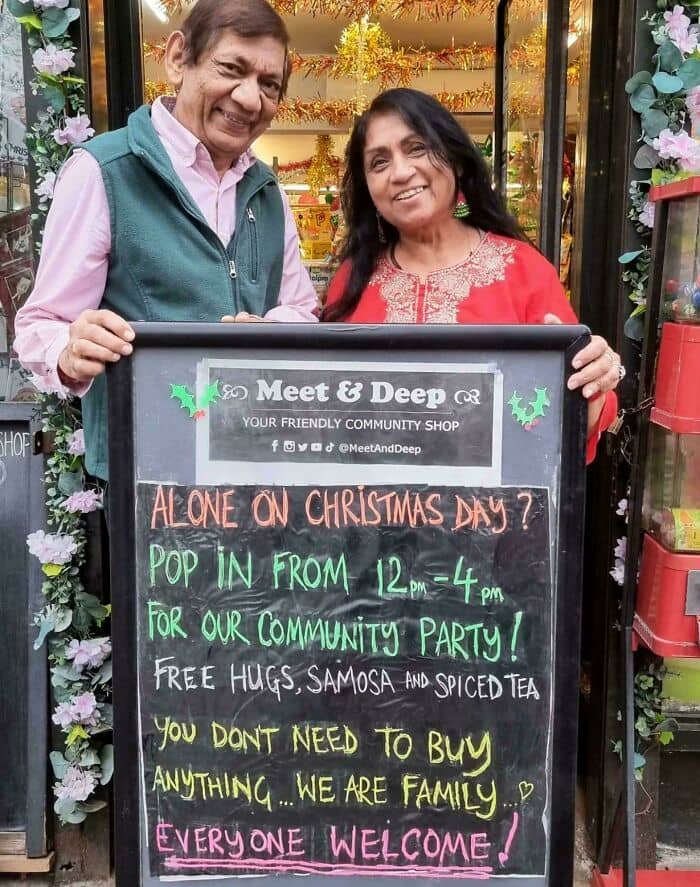 Meet & Deep
YOUR FRIENDLY COMMUNITY SHOP
@MeetAndDeep
ALONE ON CHRISTMAS DAY?
POP IN FROM 12PM - 4PM
FOR OUR COMMUNITY PARTY!
FREE HUGS, SAMOSA AND SPICED TEA
YOU DONT NEED TO BUY
ANYTHING... WE ARE FAMILY...
EVERYONE WELCOME!
SHOP